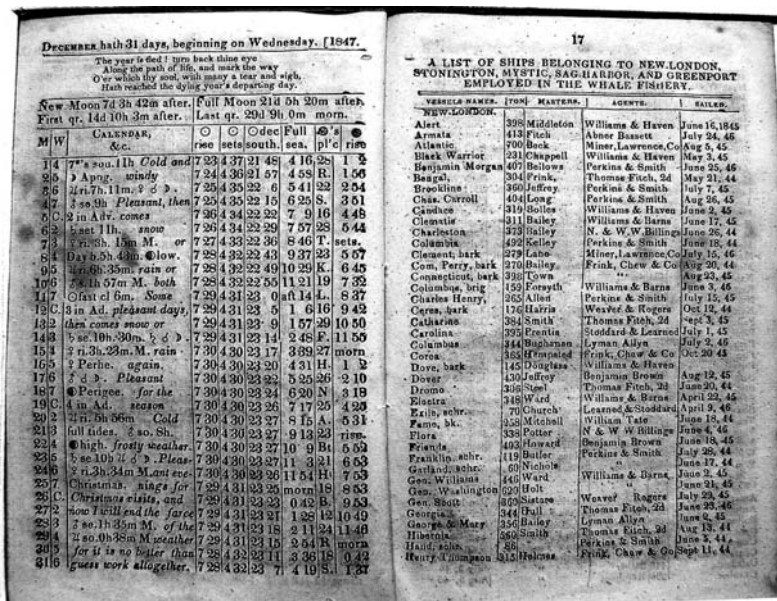 DECEMBER hath 31 days, beginning on Wednesday. [1847.
The year is died! turn back thine eye
Along the path of life, and mark the way
O'er which thy soul, with many a tear and sigh,
Hath reached the dying year's departing day.
New Moon 7d 3h 42m after. Full Moon 21d 5h 20m after.
First qr. 14d 10h 3m after. Last qr. 29d 9h 0m morn.
M W CALENDAR, &c. ☉ rise ☉ sets ☉dec south. Full sea. pl'c rise
1 4 7*'s sou. 11h Cold and 7 23 4 37 21 48 4 16 28
2 5 Apng. windy 7 24 4 36 21 57 4 58 R. 1 56
3 6 ri. 7h. 11m. 7 25 4 35 22 6 5 41 22 2 54
4 7 so. 9h Pleasant, then 7 25 4 35 22 15 6 25 S. 3 51
5 C. 2 in Adv. comes 7 26 4 34 22 22 7 9 16 4 48
6 2 set 11h. snow 7 26 4 34 22 29 7 57 28 5 44
7 3 ri. 3h. 15m M. or 7 27 4 33 22 36 8 46 T. sets.
8 4 Day b. 5h. 43m. low. 7 28 4 32 22 43 9 37 23 5 57
9 5 ri. 6h. 35m. rain or 7 28 4 32 22 49 10 29 K. 6 45
10 6 s. 1h 57m M. both 7 28 4 32 22 55 11 21 19 7 32
11 7 fast cl 6m. Some 7 29 4 31 23 0 aft 14 L. 8 37
12 C. 3 in Ad. pleasant days, 7 29 4 31 23 5 1 6 16 9 42
13 2 then comes snow or 7 29 4 31 23 9 1 57 29 10 50
14 3 se. 10h. 30m. 7 29 4 31 23 14 2 48 F. 11 55
15 4 ri. 3h. 23m. M. rain 7 30 4 30 23 17 3 39 27 morn
16 5 Perhe. again. 7 30 4 30 23 20 4 31 H. 1 2
17 6 Pleasant 7 30 4 30 23 22 5 25 26 2 10
18 7 Perigee. for the 7 30 4 30 23 24 6 20 N 3 18
19 C. 4 in Ad. season 7 30 4 30 23 26 7 17 25 4 25
20 2 ri. 5h 56m Cold 7 30 4 30 23 27 8 15 A. 5 31
21 3 full tides. so. 8h. 7 30 4 30 23 27 9 13 23 rise.
22 4 high. frosty weather. 7 30 4 30 23 27 10 9 Bt 5 52
23 5 se 10h Pleas- 7 30 4 30 23 27 11 3 21 6 53
24 6 ri. 3h. 34m M. ant eve- 7 30 4 30 23 26 11 54 H 7 53
25 7 Christmas. nings for 7 29 4 31 23 25 morn 18 8 53
26 C. Christmas visits, and 7 29 4 31 23 23 0 42 B. 9 53
27 2 now I will end the farce 7 29 4 31 23 21 1 28 12 10 49
28 3 so. 1h 35m M. of the 7 29 4 31 23 18 2 11 24 11 46
29 4 so. 0h38m M weather 7 29 4 31 23 15 2 54 R morn
30 5 for it is no better than 7 28 4 32 23 11 3 36 18 0 42
31 6 guess work altogether. 7 28 4 32 23 7 4 19 S. 1 37
17
A LIST OF SHIPS BELONGING TO NEW-LONDON,
STONINGTON, MYSTIC, SAG-HARBOR, AND GREENPORT
EMPLOYED IN THE WHALE FISHERY.
VESSELS NAMES. TON MASTERS. AGENTS. SAILED.
NEW-LONDON.
Alert 398 Middleton Williams & Haven June 16, 1845
Armata 413 Fitch Abner Bassett July 24, 46
Atlantic 700 Beck Miner, Lawrence, Co Aug 5, 45
Black Warrior 231 Chappell Williams & Haven May 3, 45
Benjamin Morgan 407 Bellows Perkins & Smith June 25, 46
Bengal, 304 Frink, Thomas Fitch, 2d May 21, 44
Brookline 360 Jeffrey, Perkins & Smith July 7, 45
Chas. Carroll 404 Long Perkins & Smith Aug 26, 45
Candace 319 Bolles Williams & Haven June 2, 45
Clematis 311 Bailey Williams & Barns June 17, 45
Charleston 373 Bailey N. & W.W. Billings June 26, 44
Columbia 492 Kelley Perkins & Smith June 18, 44
Clement, bark 279 Lane Miner, Lawrence, Co July 15, 46
Com, Perry, bark 270 Bailey Frink, Chew & Co Aug 20, 44
Connecticut, bark 398 Town " Aug 23, 45
Columbus, brig 159 Forsyth Williams & Barns June 3, 46
Charles Henry, 265 Allen Perkins & Smith July 15, 45
Ceres, bark 176 Harris Weaver & Rogers Oct 12, 44
Catharine 384 Smith Thomas Fitch, 2d Sept 3, 45
Carolina 395 Prentis Stoddard & Learned July 1, 45
Columbus 344 Buchanan Lyman Allyn July 2, 46
Corea 365 Hempsted Frink, Chew & Co Oct 20 45
Dove, bark 145 Douglass Williams & Haven
Dover 430 Jeffrey Benjamin Brown Aug 12, 45
Dromo 306 Steel Thomas Fitch, 2d June 20, 44
Electra 348 Ward Williams & Barns April 22, 45
Exile, schr. 70 Church Learned & Stoddard April 9, 46
Fame, bk. 258 Mitchell William Tate June 18, 44
Flora 338 Potter N & W W Billings June 4, 46
Friends 403 Howard Benjamin Brown June 18, 45
Franklin, schr. 119 Butler Perkins & Smith July 28, 44
Garland, schr. 60 Nichols " June 17, 44
Gen. Williams 446 Ward Williams & Barns, June 2, 45
Gen. Washington 620 Holt June 21, 45
Gen. Scott 360 Sistare Weaver Rogers July 29, 45
Georgia 344 Hull Thomas Fitch, 2d June 23, 46
George & Mary 356 Bailey Lyman Allyn June 2, 45
Hibernia 560 Smith Thomas Fitch, 2d Aug 13, 44
Hand, schr. 86 Perkins & Smith June 5, 44
Henry Thompson 315 Holmes Frink, Chew & Co Sept 11, 44